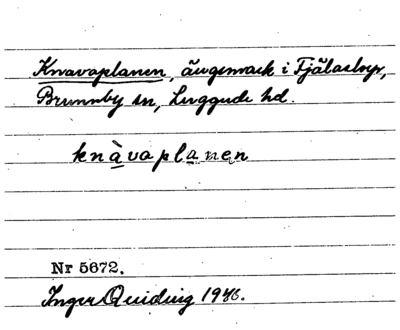 Knavaplanen, ängsmark i Fjälastorp,
Brunnby sn, Luggude hd.
knàvaplanen
Nr 5672.
Inger Quiding 1946.